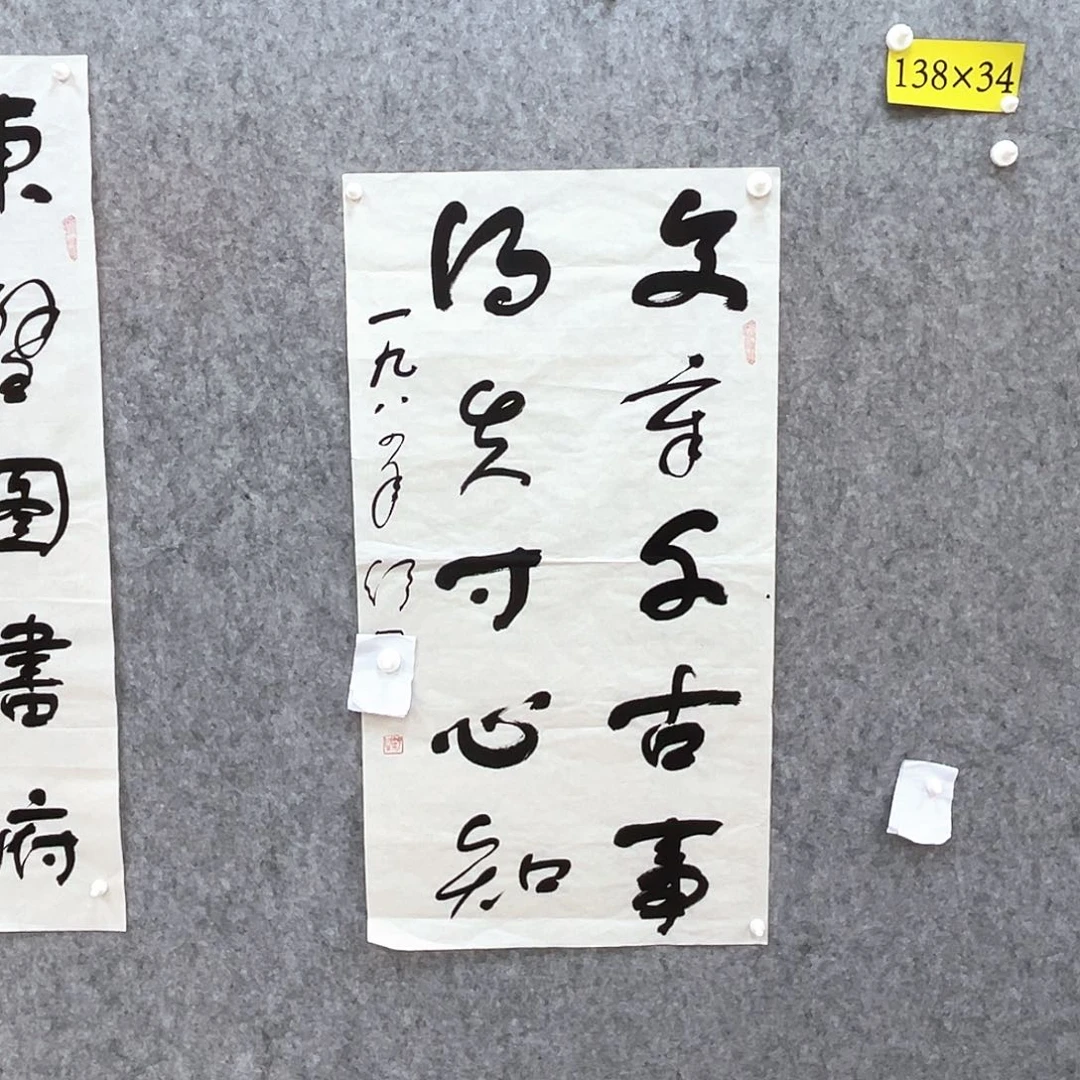 138×34
文章千古事
得失寸心知
一九八四年
東壁圖書府